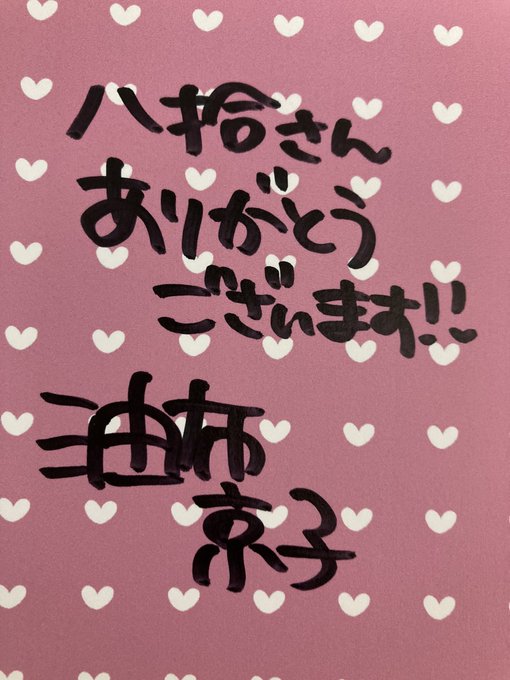 八拾さん
ありがとう
ございます!!
油布
京子